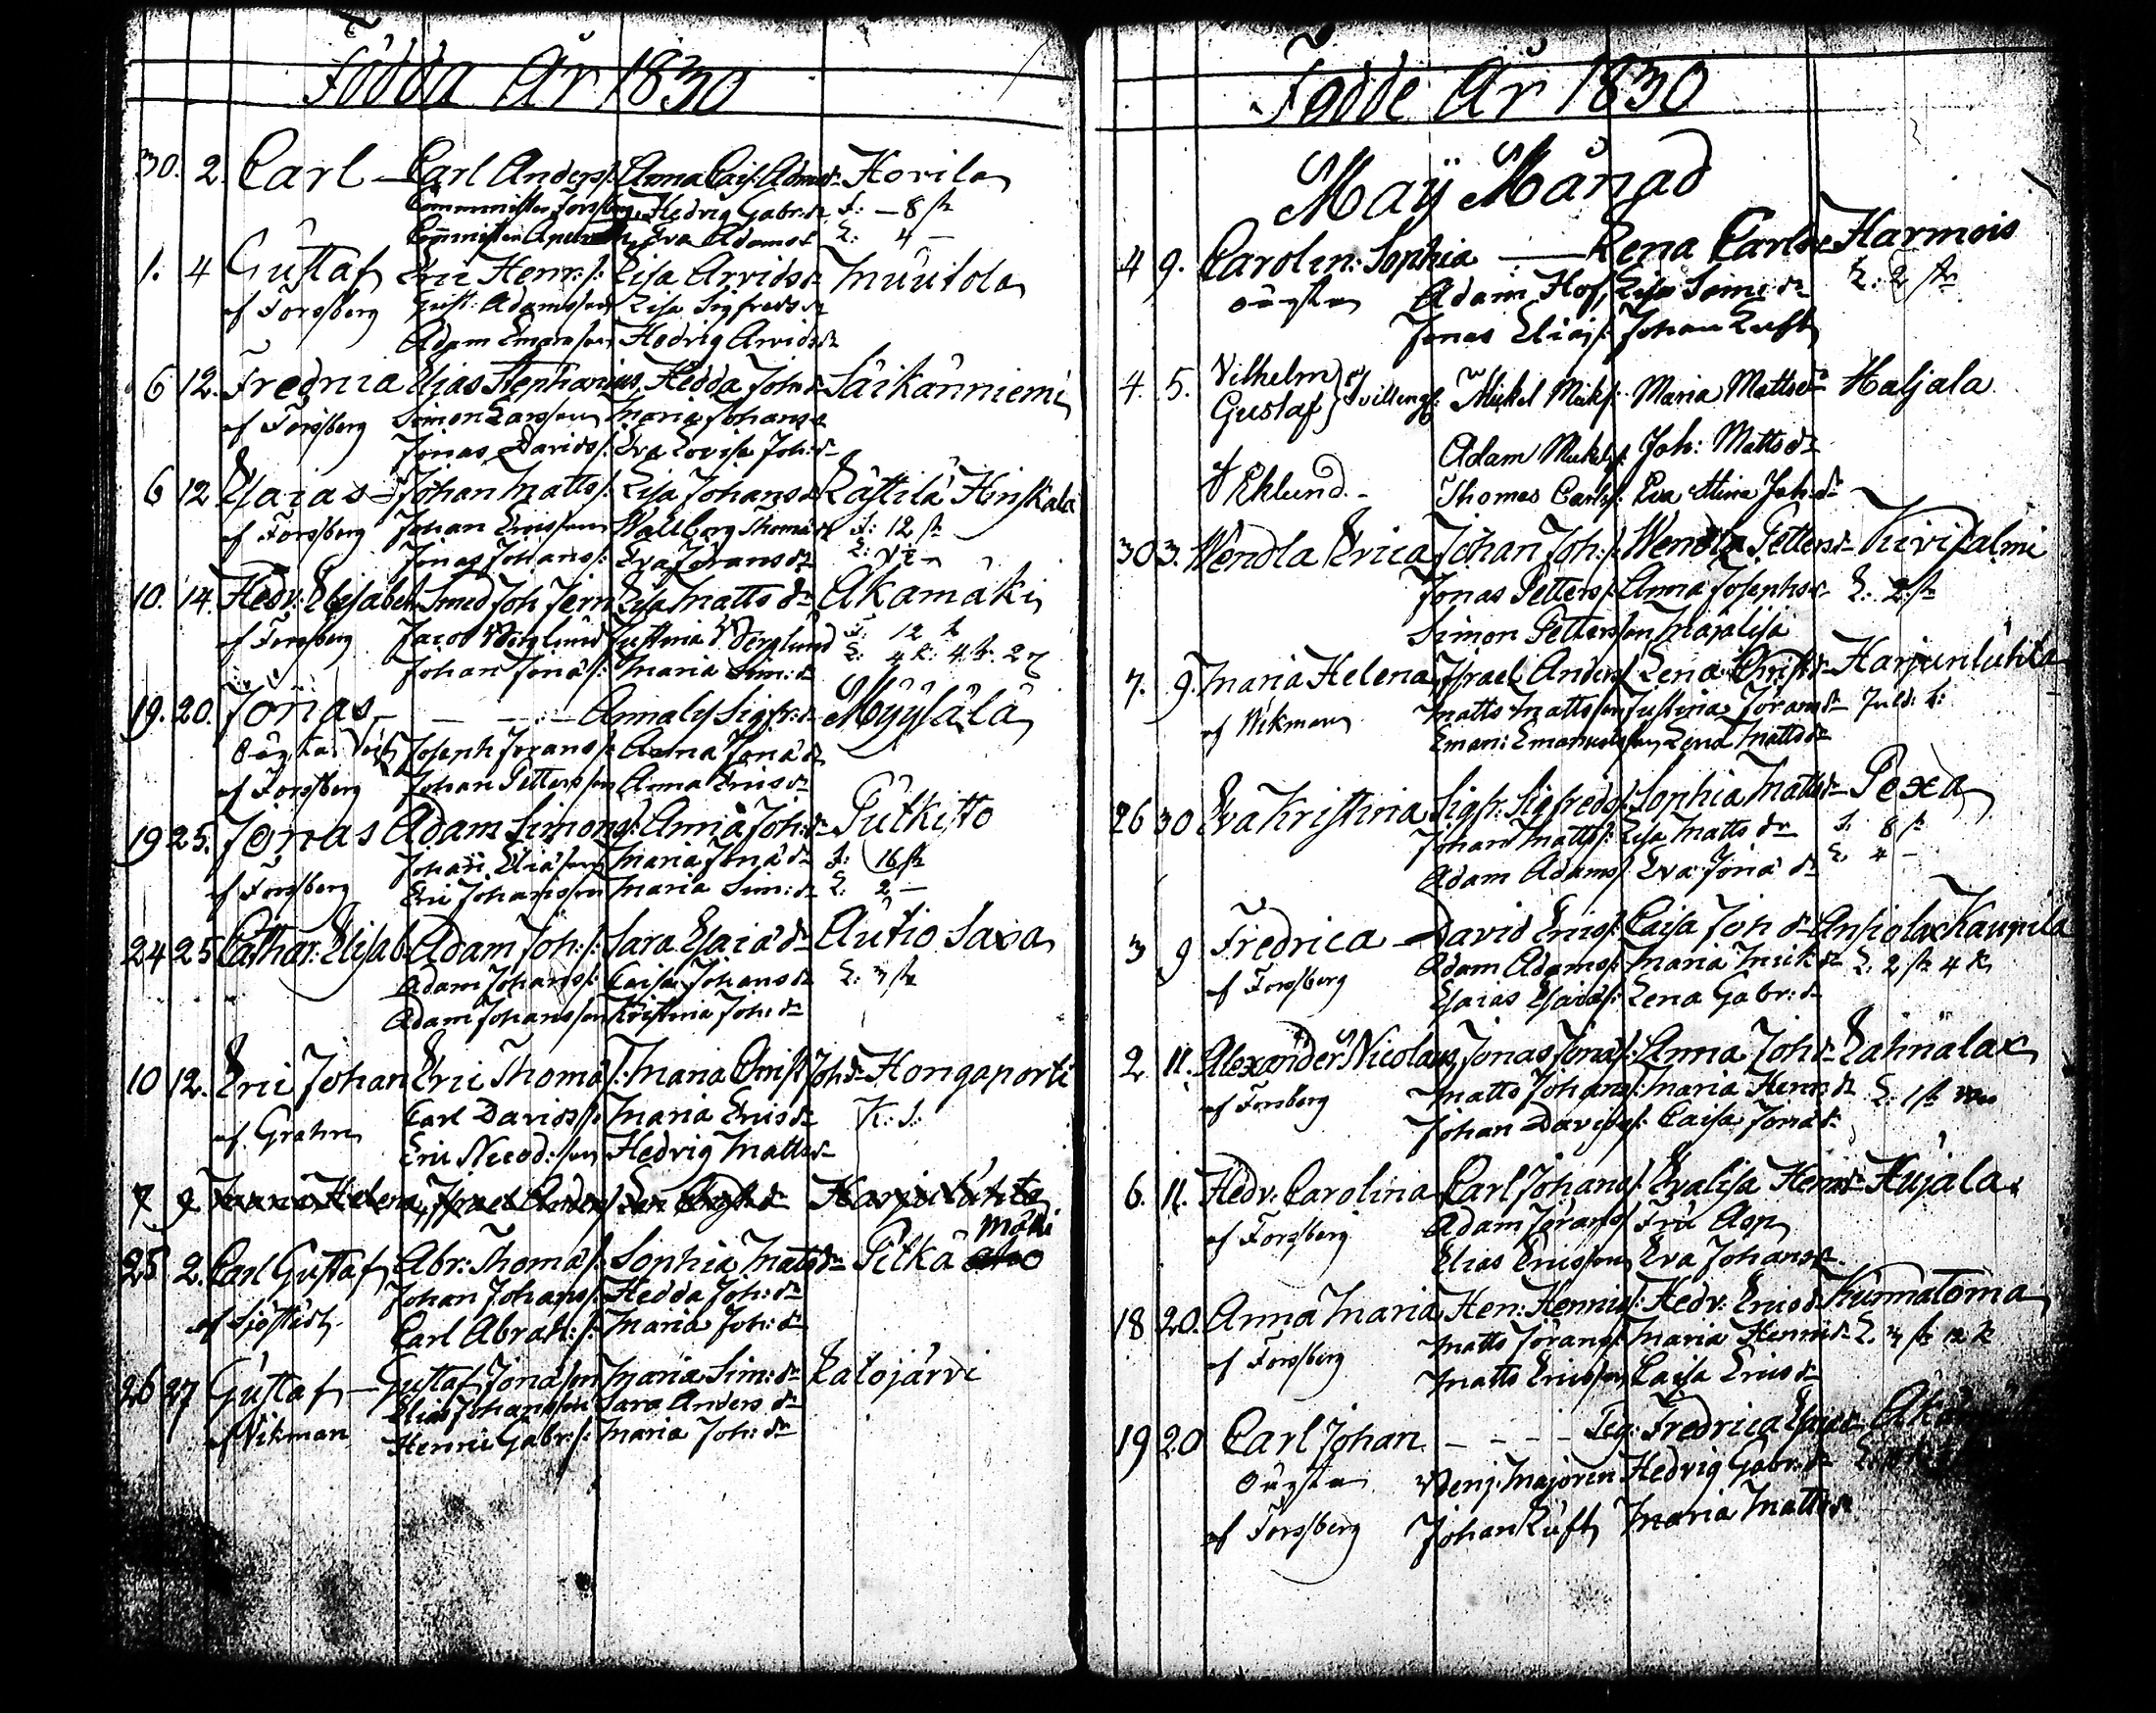 Födda År 1830
30. 2. Carl — Carl Anders s: Anna Cajs: Adams dr Hovila
Comminister Forsberg, Hedvig Gabr: dr I: — 8 sk
Eva Adams dr L: 4 —
1. 4 Gustaf Eric Henr: s: Lisa Arvids dr Muutola
af Forssberg Gust: Adamsson Lisa Sigfreds dr
Adam Emanuelsson Hedvig Arvids dr
6 12. Fredrica Elias Stephanius, Hedda Joh: dr Säikänniemi
af Forssberg Simon Larsson Maria Johans dr
Jonas Davids s: Eva Lovisa Joh: dr
6 12 Esaias — Johan Matts s: Lisa Johans dr Rättilä Hinskala
af Forssberg Johan Ericsson Wallborg Thomas dr I: 12 sk
Jonas Johans s: Eva Jörans dr L:
10. 14. Hedv: Elisabeth Smed Joh Jern Lisa Matts dr Akamäki
af Forssberg Jacob Berglund Justina Berglund I: 12 k
Johan Jona s: Maria Sim: dr L: 4 k: 4
19. 20. Jonas — — — Annalis Sigfr: dr Myylälä
Oägta Joseph Jörans s: Anna Jona dr
af Forssberg Johan Pettersson Anna Erics dr
19 25. Jonas Adam Simons s: Anna Joh: dr Putkisto
Johan Eliasson Maria Jona dr I: 16 sk
af Forssberg Eric Johansson Maria Sim: dr L: 2 —
24 25 Cathar: Elisab Adam Joh: s: Sara Esaiæ dr Autio Saxa
Adam Johans s: Caisa Johans dr L: 3 sk
Adam Johansson Kristina Joh: dr
10 12. Eric Johan Eric Thoma s: Maria Christ Joh dr Hongaporti
af Grahn Carl Davids s: Maria Erics dr K: I:
Eric Nicod: son Hedvig Matts dr
7 9 Maria Helena, Israel Anders s Len Christ dr Harjunluhta
mäki
25 2. Carl Gustaf Abr: Thoma s: Sophia Matts dr Pitkä aho
Johan Johans s: Hedda Joh: dr
af Sjöstedt Carl Abrah: s: Maria Joh: dr
26 27 Gustaf — Gustaf Jonasson Maria Sim: dr Katojärvi
Elias Johansson Sara Anders dr
af Vikman Henric Gabr: s: Maria Joh: dr
Födde År 1830
Maÿ Månad
4 9. Carolin: Sophia — Lena Carls dr Harmois
oägta Adam Hof, Lisa Sim: dr L: 2 sk
Jonas Elias s: Johan Luft
4. 5. Vilhelm
Gustaf } tvillingr: Mickel Mick s: Maria Matts dr Haljala
Adam Mickels s: Joh: Matts dr
af Eklund. Thomas Carls s: Eva Stina Joh: dr
30 3. Wendla Erica Johan Joh: s: Wendla Petters dr Kivisalmi
Jonas Petters s: Anna Josephs dr L: 2 sk
Simon Pettersson Majalisa
7. 9. Maria Helena, Israel Anders s Lena Christ dr Harjunluhta
af Wikman Matts Mattsson Justina Jörans dr
Eman: Emanuelsson Lena Matts dr
26 30 Eva Kristina Sigfr: Sigfreds s: Sophia Matts dr Pexa
Johan Matts s: Lisa Matts dr I: 8 sk
Adam Adams s Eva Jona dr L. 4 —
3 9 Fredrica — David Erics s: Caisa Joh dr Ansiolax Kaupila
af Forssberg Adam Adams s: Maria Mick dr L. 2 sk 4 k
Esaias Esaiæ s: Lena Gabr: dr
2 11. Alexander Nicolaus, Jonas Jona s: Anna Joh dr Lahnalax
af Forsberg Matts Johans s: Maria Henr: dr L. 1 sk
Johan Davids s: Caisa Jona dr
6. 11. Hedv: Carolina Carl Johans s Evalisa Henr: dr Hujala
af Forssberg Adam Jörans s Fru Asp
Elias Ericsson Eva Johans dr
18 20. Anna Maria Hen: Henrics s: Hedv: Erics dr Kurmatoma
af Forssberg Matts Jörans s: Maria Henric dr L. 3 sk 12 k
Matts Ericsson Caisa Erics dr
19 20 Carl Johan — — — Pig: Fredrica Esaiæ dr
oägta Benj: Majoren Hedvig Gabr: dr
af Forssberg Johan Luft Maria Matts dr